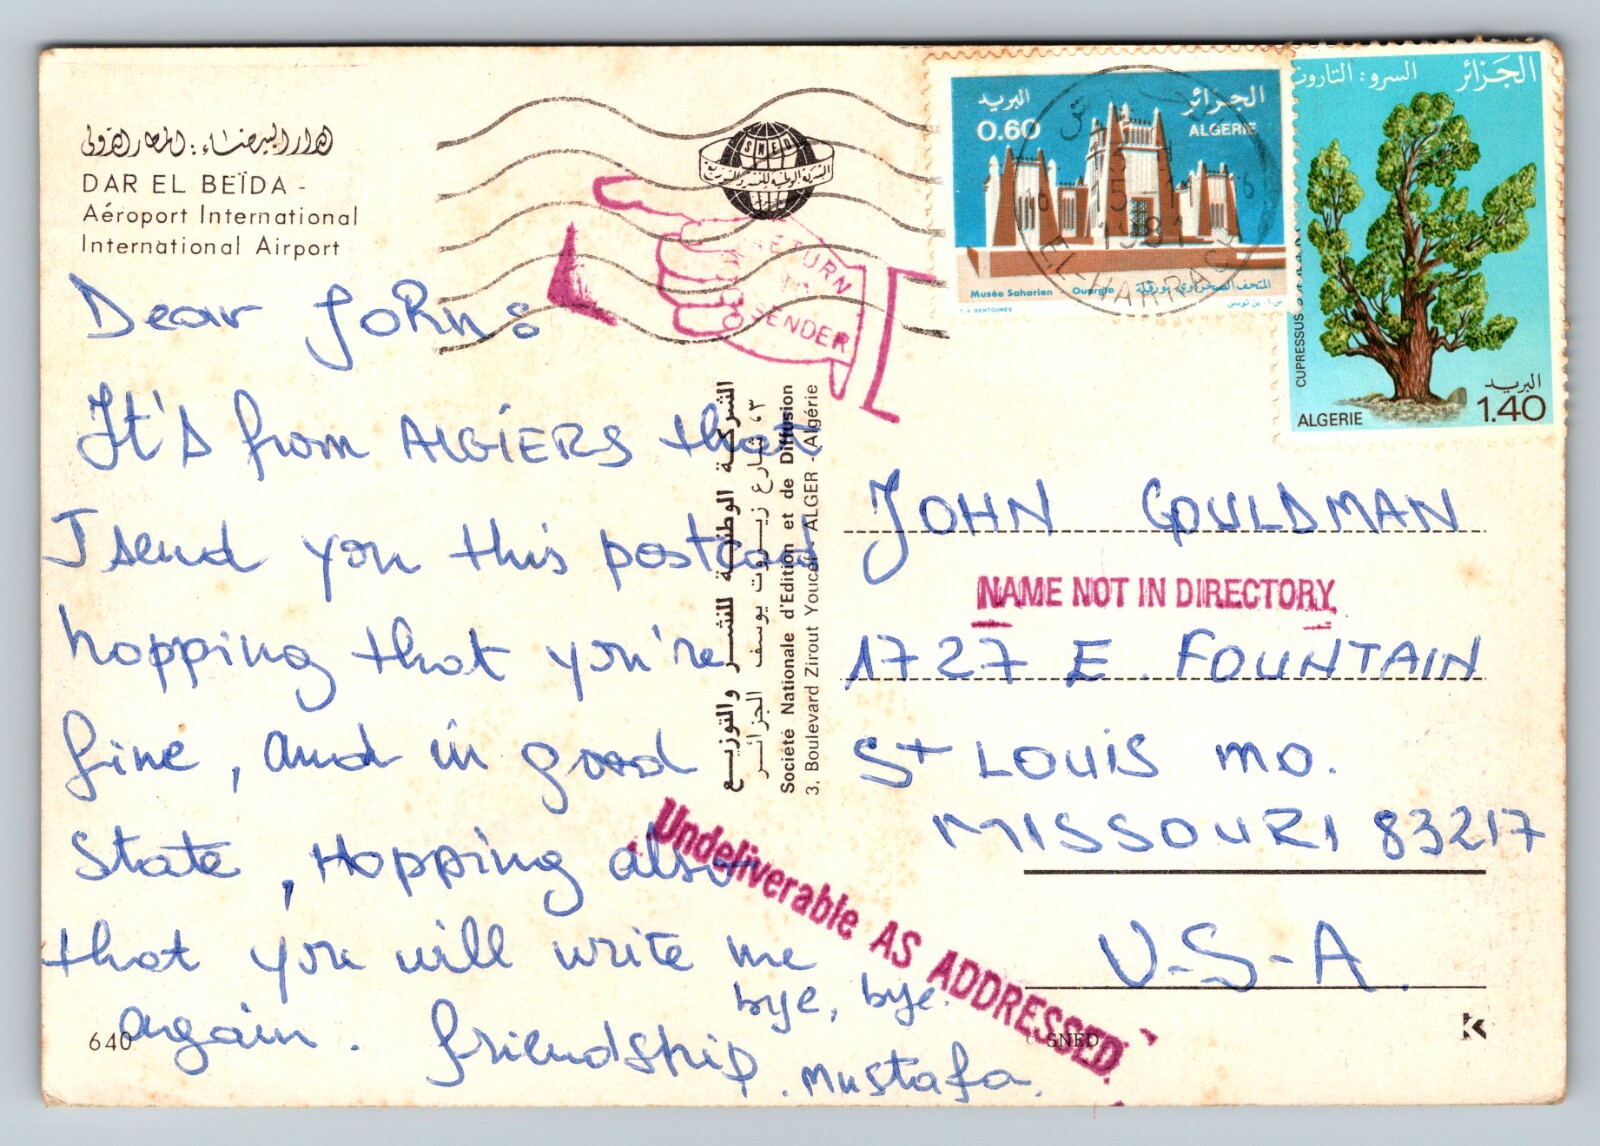 الدار البيضاء : المطار الدولي
DAR EL BEÏDA -
Aéroport International
International Airport
SNED
الشركة الوطنية للنشر والتوزيع
RETURN
TO
SENDER
البريد
0.60
الجزائر
ALGERIE
Musée Saharien Ouargla المتحف الصحراوي بورقلة
15
1981
EL-HARRACH
السرو : التاروت
الجزائر
CUPRESSUS
ALGERIE
البريد
1.40
Dear John :
It's from ALGiERS that
I send you this postcad
hopping that you're
fine, and in good
state, Hopping also
that you will write me
again. bye, bye.
friendship. Mustafa.
الشركة الوطنية للنشر والتوزيع
٣، شارع زيروت يوسف الجزائر
Société Nationale d'Edition et de Diffusion
3, Boulevard Zirout Youcef - ALGER - Algérie
JOHN GOULDMAN
NAME NOT IN DIRECTORY
1727 E. FOUNTAIN
St LOUIS MO.
MISSOURI 83217
U-S-A.
Undeliverable AS ADDRESSED
640
© SNED
K